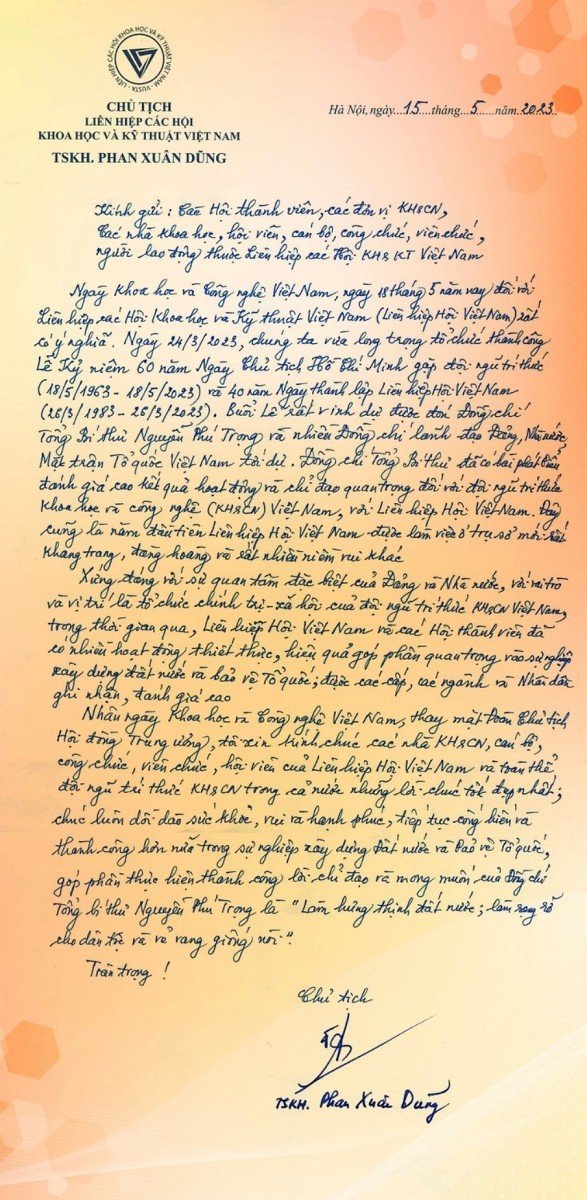 LIÊN HIỆP CÁC HỘI KHOA HỌC VÀ KỸ THUẬT VIỆT NAM - VUSTA
CHỦ TỊCH
LIÊN HIỆP CÁC HỘI
KHOA HỌC VÀ KỸ THUẬT VIỆT NAM
TSKH. PHAN XUÂN DŨNG
Hà Nội, ngày...15....tháng...5.....năm...2023...
Kính gửi: Các Hội thành viên, các đơn vị KH&CN,
Các nhà khoa học, hội viên, cán bộ, công chức, viên chức,
người lao động thuộc Liên hiệp các Hội KH&KT Việt Nam
Ngày Khoa học và Công nghệ Việt Nam, ngày 18 tháng 5 năm nay đối với
Liên hiệp các Hội Khoa học và Kỹ thuật Việt Nam (Liên hiệp Hội Việt Nam) rất
có ý nghĩa. Ngày 24/3/2023, chúng ta vừa long trọng tổ chức thành công
Lễ Kỷ niệm 60 năm Ngày Chủ tịch Hồ Chí Minh gặp đội ngũ trí thức
(18/5/1963 - 18/5/2023) và 40 năm Ngày thành lập Liên hiệp Hội Việt Nam
(26/3/1983 - 26/3/2023). Buổi Lễ rất vinh dự được đón Đồng chí
Tổng Bí thư Nguyễn Phú Trọng và nhiều Đồng chí lãnh đạo Đảng, Nhà nước,
Mặt trận Tổ quốc Việt Nam tới dự. Đồng chí Tổng Bí thư đã có bài phát biểu
đánh giá cao kết quả hoạt động và chỉ đạo quan trọng đối với đội ngũ trí thức
khoa học và công nghệ (KH&CN) Việt Nam, với Liên hiệp Hội Việt Nam. Đây
cũng là năm đầu tiên Liên hiệp Hội Việt Nam được làm việc ở trụ sở mới rất
khang trang, đàng hoàng và rất nhiều niềm vui khác
Xứng đáng với sự quan tâm đặc biệt của Đảng và Nhà nước, với vai trò
và vị trí là tổ chức chính trị-xã hội của đội ngũ trí thức KH&CN Việt Nam,
trong thời gian qua, Liên hiệp Hội Việt Nam và các Hội thành viên đã
có nhiều hoạt động thiết thực, hiệu quả góp phần quan trọng vào sự nghiệp
xây dựng đất nước và bảo vệ Tổ quốc; được các cấp, các ngành và Nhân dân
ghi nhận, đánh giá cao
Nhân ngày Khoa học và Công nghệ Việt Nam, thay mặt Đoàn Chủ tịch
Hội đồng Trung ương, tôi xin kính chúc các nhà KH&CN, cán bộ,
công chức, viên chức, hội viên của Liên hiệp Hội Việt Nam và toàn thể
đội ngũ trí thức KH&CN trong cả nước những lời chúc tốt đẹp nhất;
chúc luôn dồi dào sức khoẻ, vui và hạnh phúc, tiếp tục cống hiến và
thành công hơn nữa trong sự nghiệp xây dựng Đất nước và Bảo vệ Tổ quốc,
góp phần thực hiện thành công lời chỉ đạo và mong muốn của Đồng chí
Tổng bí thư Nguyễn Phú Trọng là "Làm hưng thịnh đất nước; làm rạng rỡ
cho dân tộc và vẻ vang giống nòi".
Trân trọng !
Chủ tịch
TSKH. Phan Xuân Dũng